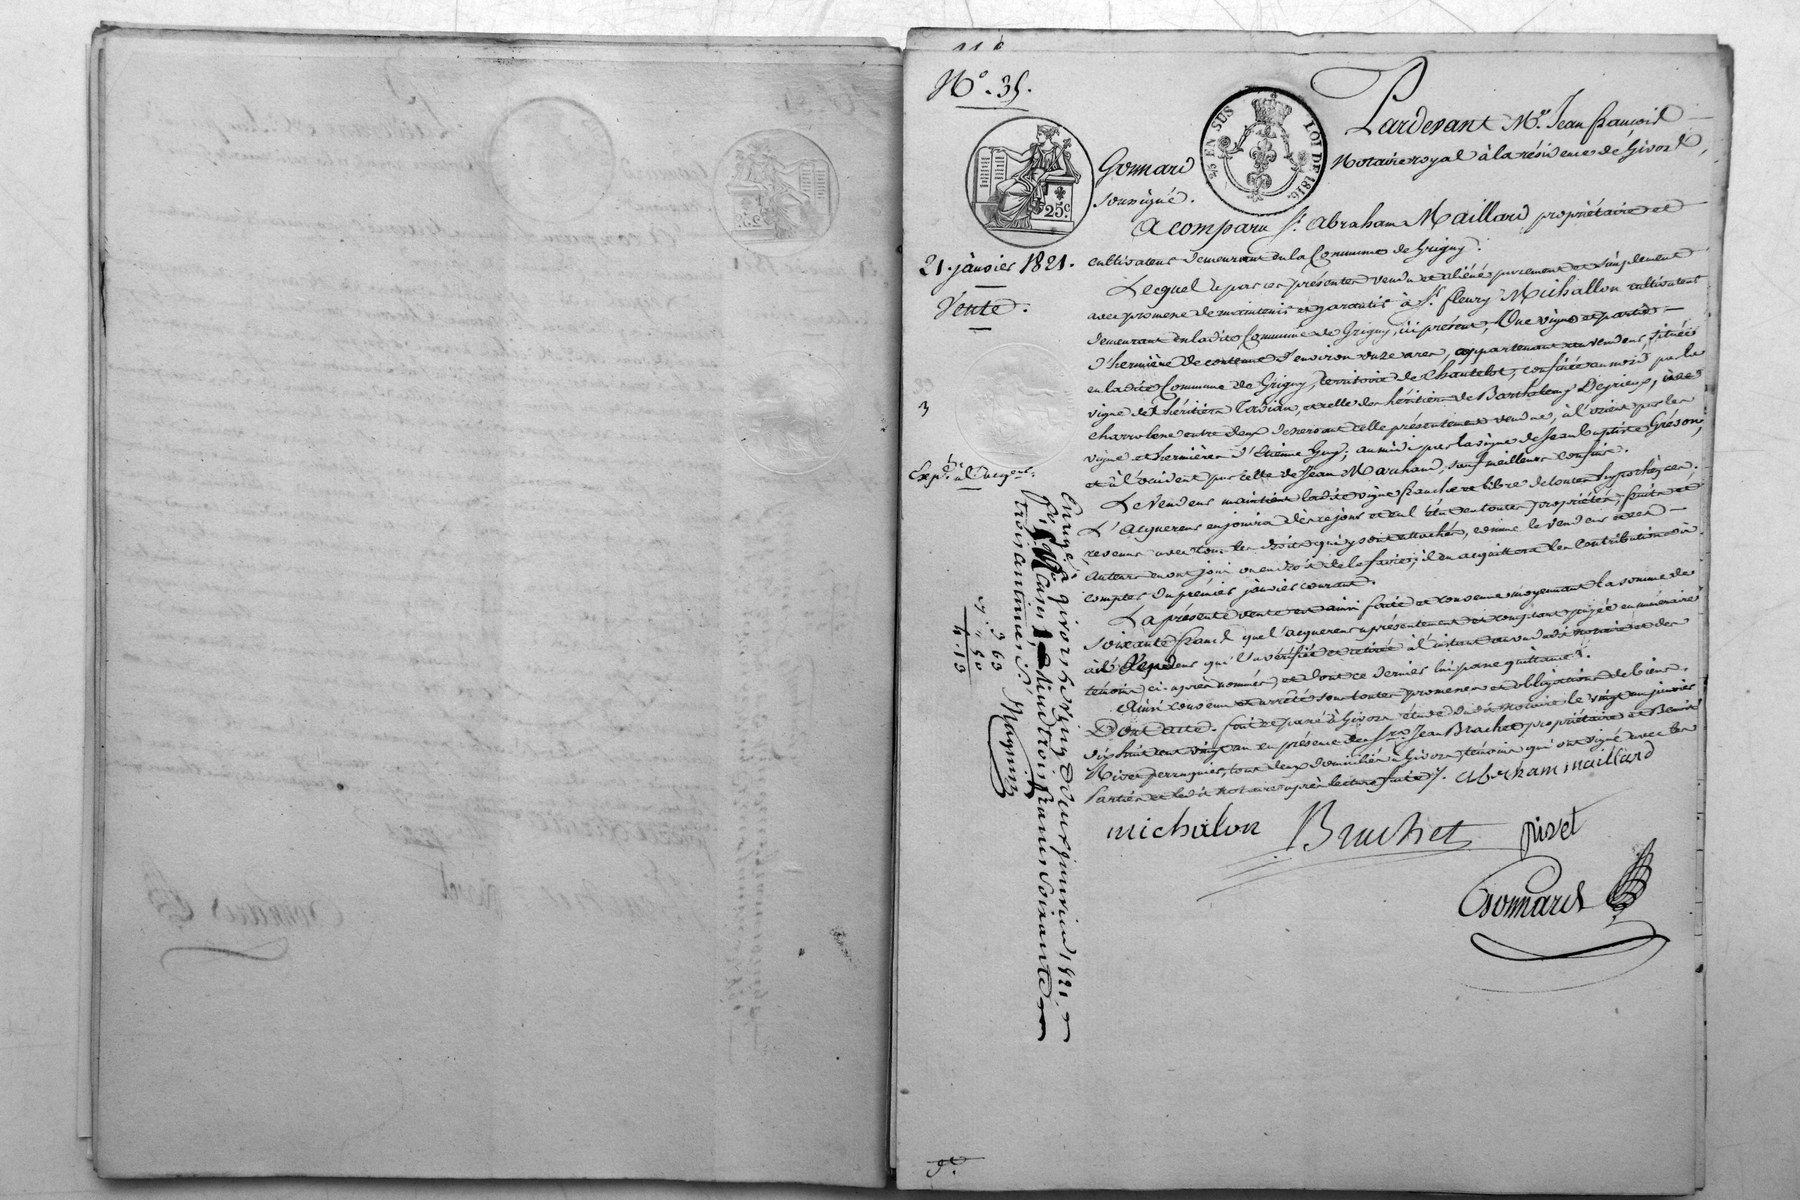 N.° 35.
25 EN SUS
LOI DE 1816.
25.c
21. janvier 1821.
Vente.
3
Pardevant M.e Jean françois
Gonnard Notaire royal à la résidence de Givors,
soussigné.
A comparu S.r Abraham Maillard propriétaire et
cultivateur demeurant en la Commune de Grigny.
Lequel a par ces présentes vendu et aliéné purement et simplement
avec promesse de maintenir et garantir à S.r fleury Michallon cultivateur
demeurant en ladite Commune de Grigny, ici présent, Une vigne et partie
d'hermière de contenue d'environ onze ares, appartenant au vendeur, située
en ladite Commune de Grigny, territoire de Chantelot, confinée au nord par la
vigne des héritiers Cadian, et celle des héritiers de Barthelemy Degrieux,
charrobene entre deux desservant celle présentement vendue, à l'orient par les
vigne et hermières d'Etienne Guy, au midi par la vigne de Jean Baptiste Gréson,
et à l'occident par celle de Jean Marchand, sauf meilleurs confins.
Le Vendeur maintient ladite vigne franche et libre de toutes hypothèques.
L'acquéreur en jouira dès ce jour et en toutes propriétés, fruits et
revenus avec tous les droits qui y sont attachés, comme le vendeur et ses
auteurs en ont joui ou eu droit de le faire; il en acquittera les contributions à
compter du premier janvier courant.
La présente vente est ainsi faite et convenue moyennant la somme de
soixante francs que l'acquéreur a présentement et comptant payée en numéraire
qui l'a vérifiée et retirée à l'instant au vu dudit notaire et des
témoins ci-après nommés, et dont ce dernier lui passe quittance.
Ainsi convenu et arrêté sous toutes promesses et obligations de biens.
Dont acte. fait et passé à Givors étude dudit Notaire le vingt un janvier
dix huit cent vingt un en présence des S.rs Jean Brachet propriétaire et Benoit
Rivet perruquier, tous deux domiciliés à Givors, témoins qui ont signé avec les
Parties et ledit Notaire après lecture faite. abraham maillard
michalon Brachet rivet
Gonnard
Enreg.é à givors le vingt deux janvier 1821, f.
deux trois francs soixante
trois centimes
3 63
50
4.13